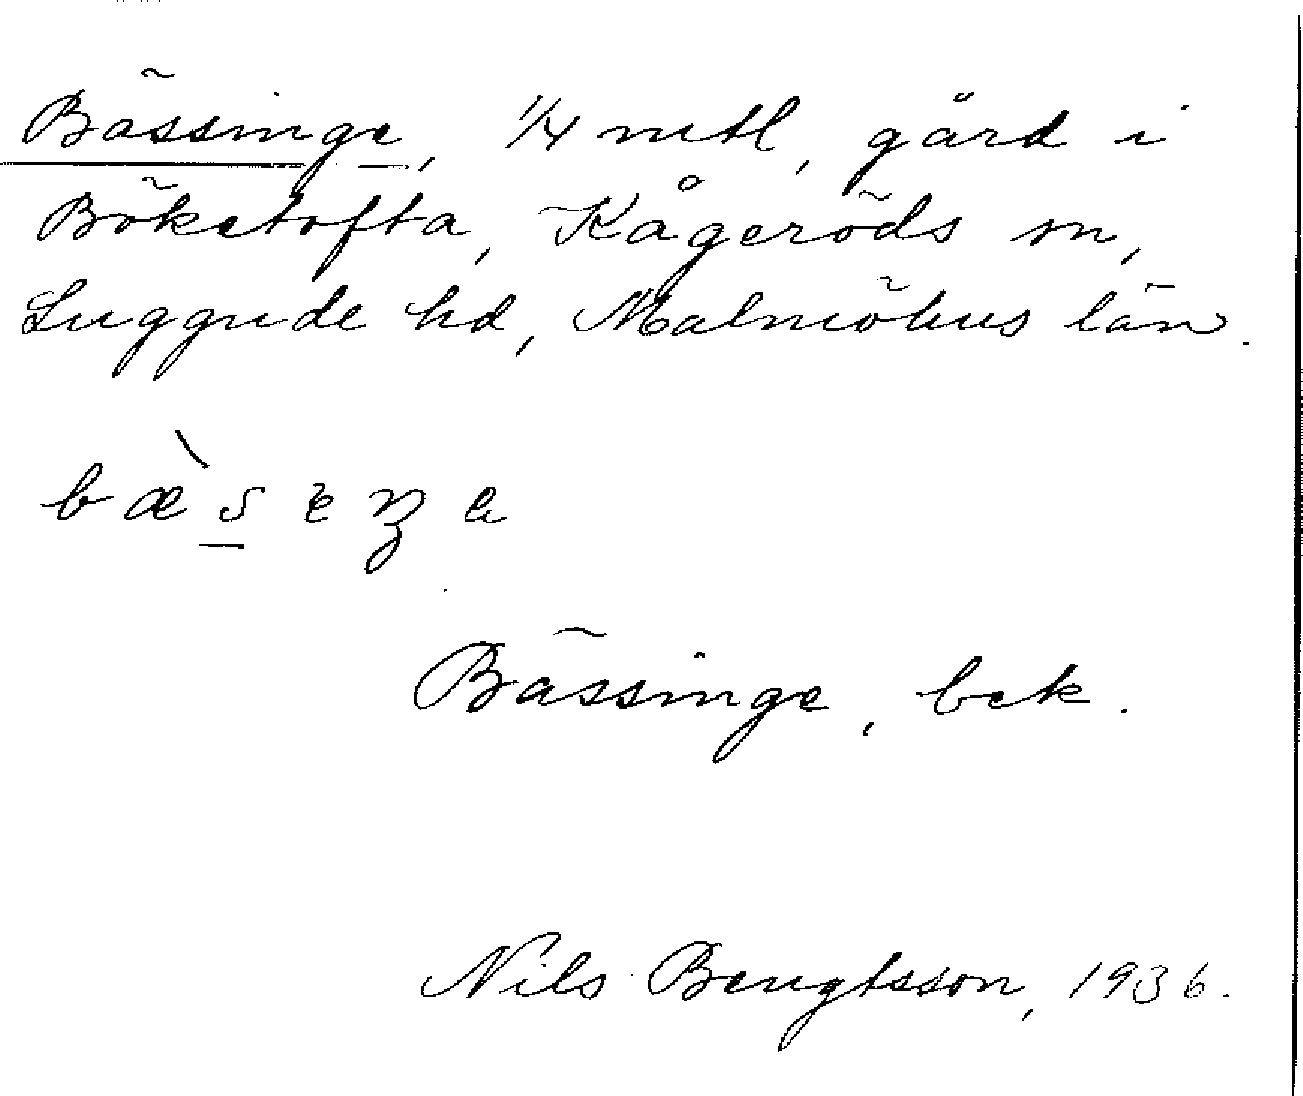 Bässinge, 1/4 mtl, gård i
Böketofta, Kågeröds sn,
Luggude hd, Malmöhus län.
Bässinge, bek.
Nils Bengtsson, 1936.